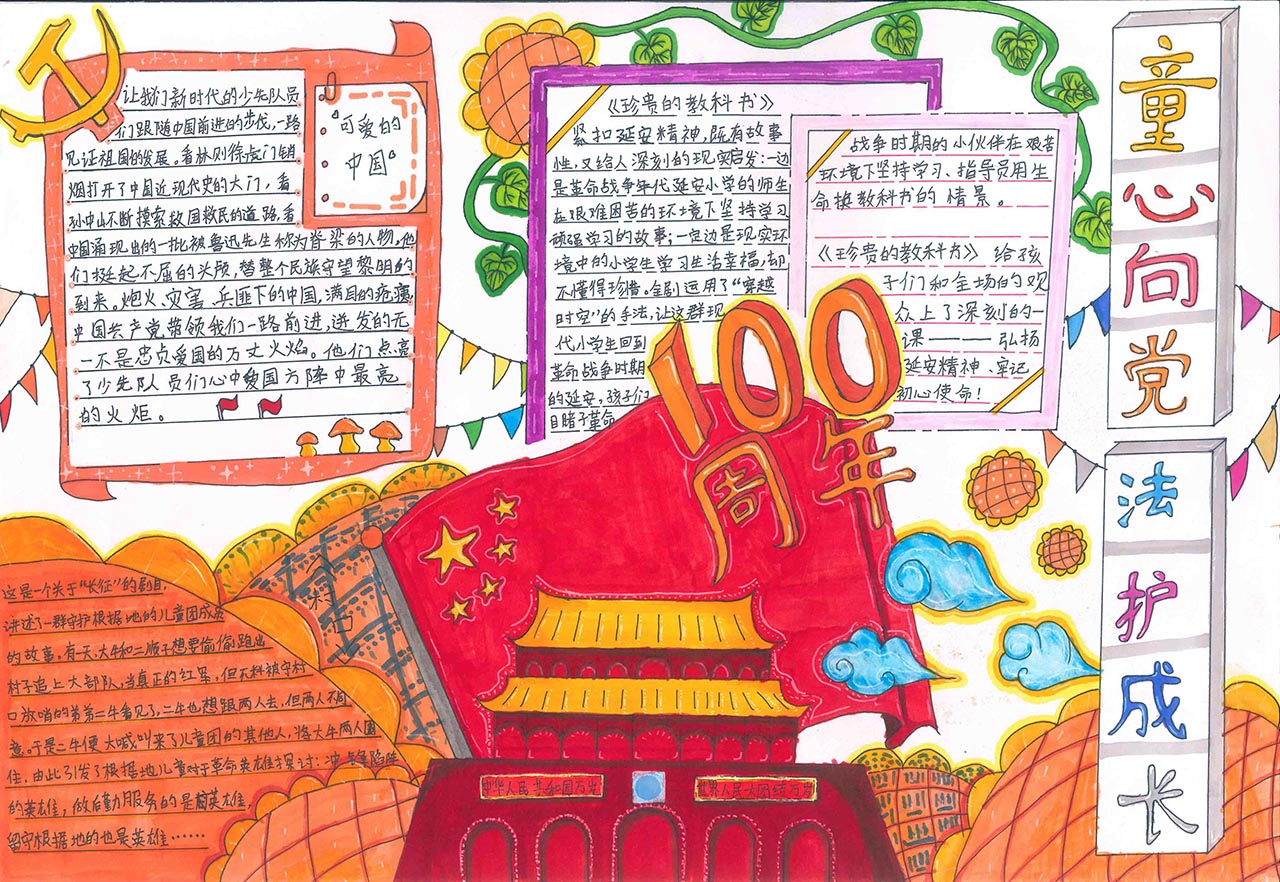 让我们新时代的少先队员
们跟随中国前进的步伐，一路
见证祖国的发展。看林则徐虎门销
烟打开了中国近现代史的大门，看
孙中山不断摸索救国救民的道路，看
中国涌现出的一批被鲁迅先生称为脊梁的人物。他
们挺起不屈的头颅，替整个民族守望黎明的
到来。炮火、灾害、兵匪下的中国，满目的疮痍
中国共产党带领我们一路前进，迸发的无
一不是忠贞爱国的万丈火焰。他们点亮
了少先队员们心中爱国方阵中最亮
的火炬。
“可爱的
中国”
《珍贵的教科书》
紧扣延安精神，既有故事
性，又给人深刻的现实启发：一边
是革命战争年代延安小学的师生
在艰难困苦的环境下坚持学习
顽强学习的故事；一定边是现实环
境中的小学生学习生活幸福，却
不懂得珍惜。全剧运用了“穿越
时空”的手法，让这群现
代小学生回到
革命战争时期
的延安，孩子们
目睹了革命
战争时期的小伙伴在艰苦
环境下坚持学习、指导员用生
命换教科书的情景。
《珍贵的教科书》给孩
子们和全场的观
众上了深刻的一
课——弘扬
延安精神、牢记
初心使命！
童心向党
法护成长
100
周年
这是一个关于“长征”的剧目，
讲述了一群守护根据地的儿童团成员
的故事，有一天，大牛和二顺子想要偷偷跑出
村子追上大部队，当真正的红军，但不料被守村
口放哨的弟弟二牛看见了，二牛也想跟两人去，但两人不同
意。于是二牛便大喊叫来了儿童团的其他人，将大牛两人围
住，由此引发了根据地儿童对于革命英雄探讨：冲锋陷阵
的英雄，做后勤服务的是英雄，
留守根据地的也是英雄……
村
中华人民共和国万岁
世界人民大团结万岁